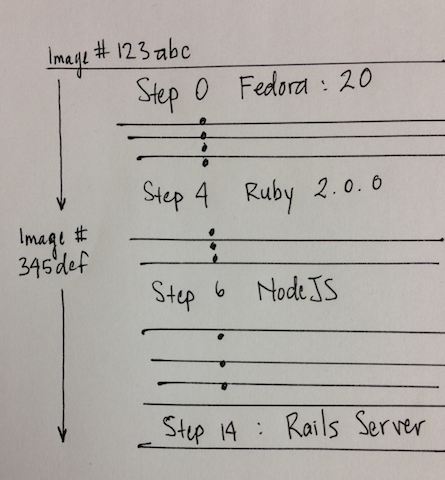 Image # 123abc
Step 0 Fedora : 20
Step 4 Ruby 2.0.0
Image #
345def
Step 6 NodeJS
Step 14 : Rails Server